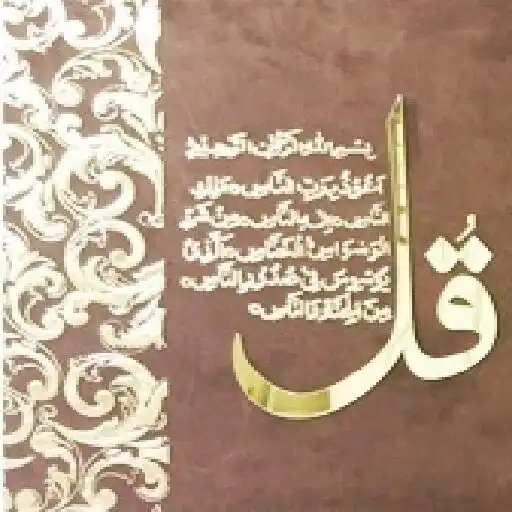 قُل
بسم الله الرحمن الرحيم
أعوذ برب الناس ملك
الناس إله الناس من شر
الوسواس الخناس الذي
يوسوس في صدور الناس
من الجنة والناس